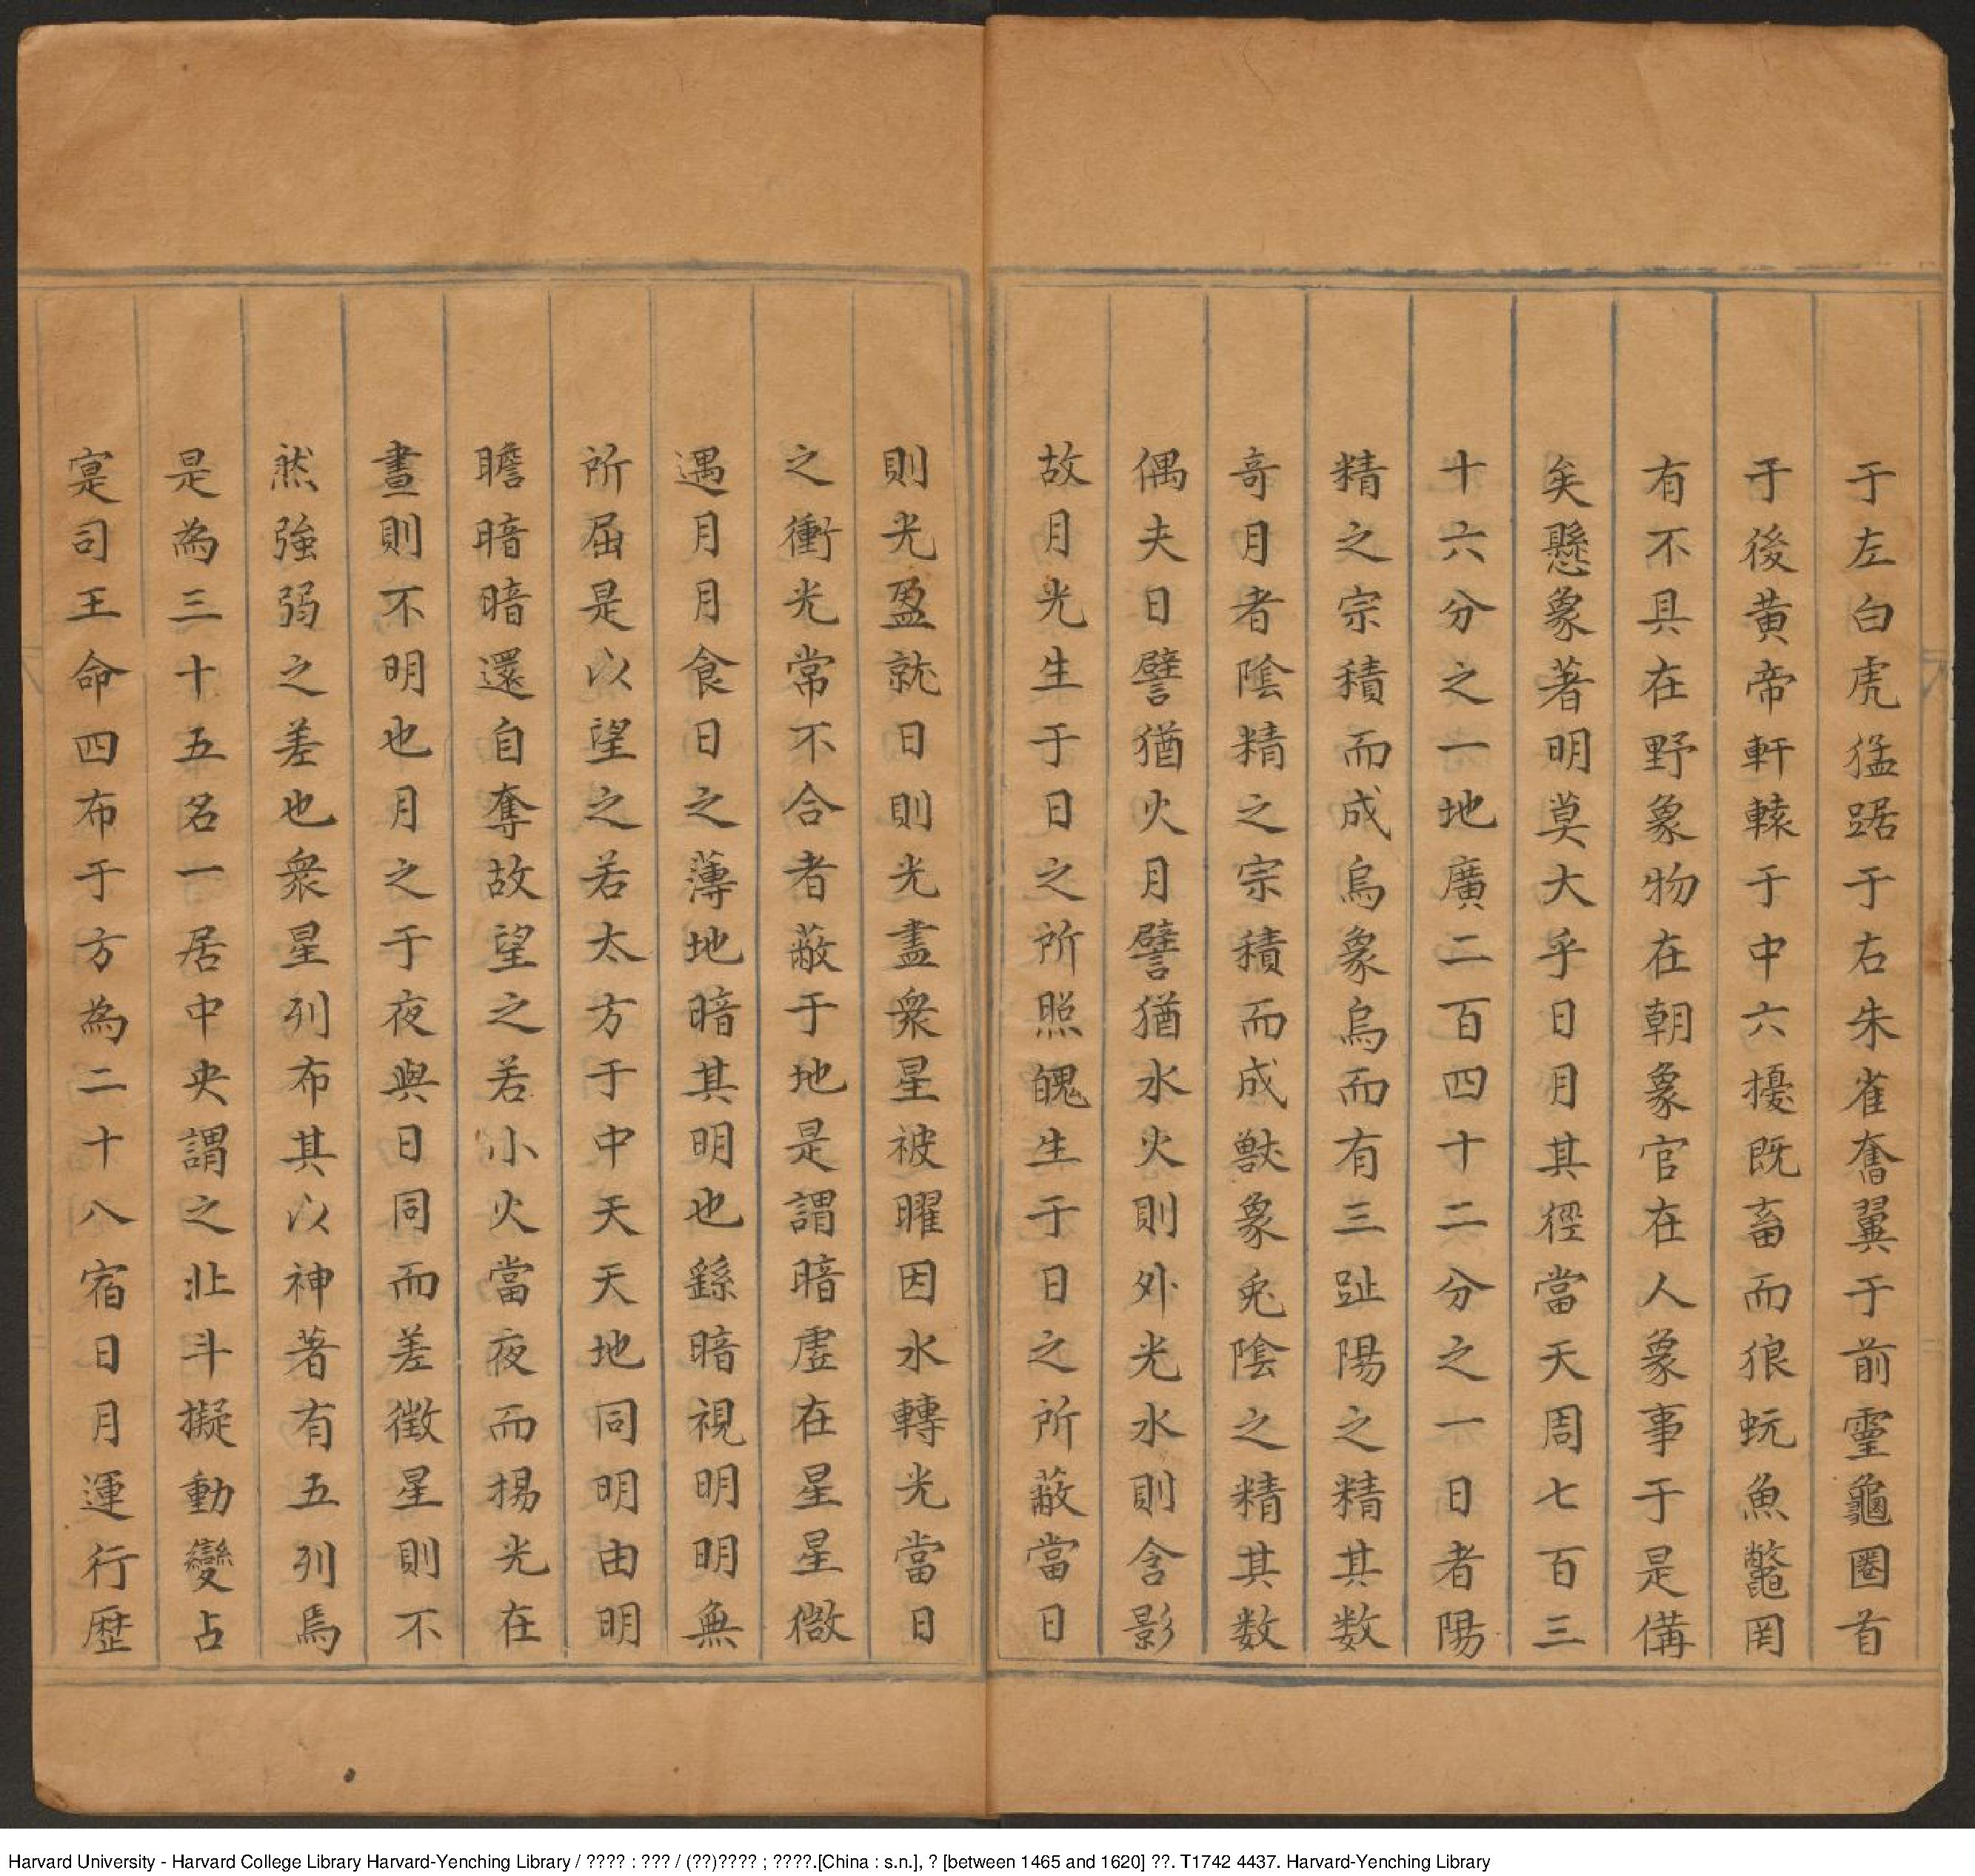 于左白虎猛踞于右朱雀奮翼于前霊龜圏首
于後黄帝軒轅于中六擾既畜而狼蚖魚鼈罔
有不具在野象物在朝象官在人象事于是備
矣懸象著明莫大乎日月其徑當天周七百三
十六分之一地廣二百四十二分之一日者陽
精之宗積而成烏象烏而有三趾陽之精其数
奇月者陰精之宗積而成獸象兎陰之精其数
偶夫日譬猶火月譬猶水火則外光水則含影
故月光生于日之所照魄生于日之所蔽當日
則光盈就日則光盡衆星被曜因水轉光當日
之衝光常不合者蔽于地是謂暗虚在星星微
遇月月食日之薄地暗其明也繇暗視明明無
所屈是以望之若太方于中天天地同明由明
瞻暗暗還自奪故望之若小火當夜而揚光在
晝則不明也月之于夜與日同而差徴星則不
然強弱之差也衆星列布其以神著有五列焉
是為三十五名一居中央謂之北斗擬動變占
寔司王命四布于方為二十八宿日月運行歴
Harvard University - Harvard College Library Harvard-Yenching Library / ???? : ??? / (??)???? ; ????.[China : s.n.], ? [between 1465 and 1620] ??. T1742 4437. Harvard-Yenching Library